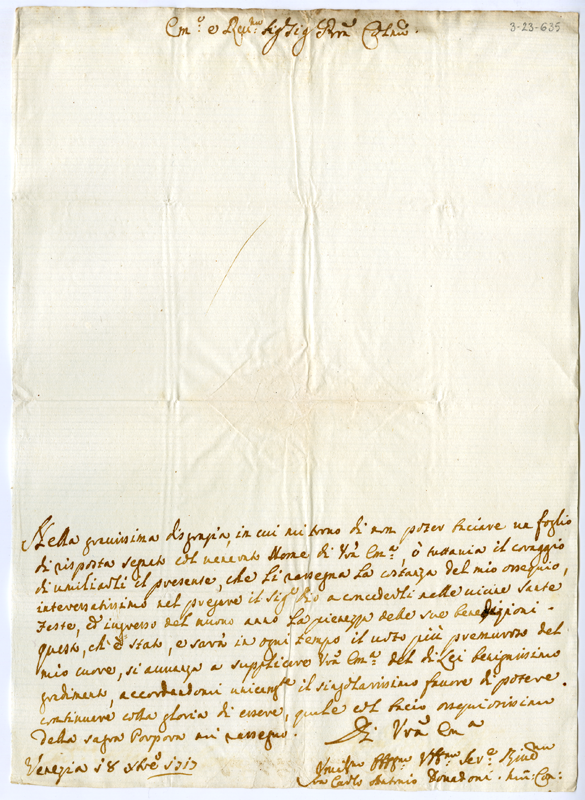 3-23-635
Em.º e Reu.mo Sig.r Sig.r Pron Col.mo
Nella grauissima disgrazia, in cui mi trouo di non poter baciare un foglio
di risposta segnato col uenerato Nome di Vrã Em.ª, ò tuttauia il coraggio
di umiliarli il presente, che Li rassegna La costanza del mio ossequio,
interessatissimo nel pregare il Sig.r Dio a concederli nelle uicine Sante
Feste, ed ingresso del nuouo anno La pienezza delle sue benedizioni.
questo, ch'è stato, e sarà in ogni tempo il uoto più premuroso del
mio cuore, si auuanza a supplicare Vrã Em.ª del di Lei benignissimo
gradimento, accordandomi unicamte il singolarissimo fauore di potere
continuare colla gloria di essere, quale col bacio ossequiosissimo
della sagra Porpora mi rassegno.
Di Vrã Em.ª
Venezia 18 Xbre 1717
Vmilmo Seru.e
Carlo Antonio Donadoni Min: Con: